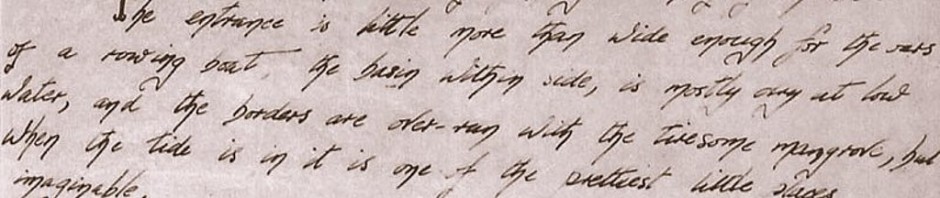 The entrance is little more than wide enough for the oars
of a rowing boat. the basin within side, is mostly dry at low
water, and the borders are over-run with the tiresome mangrove, but
when the tide is in it is one of the prettiest little places
imaginable.